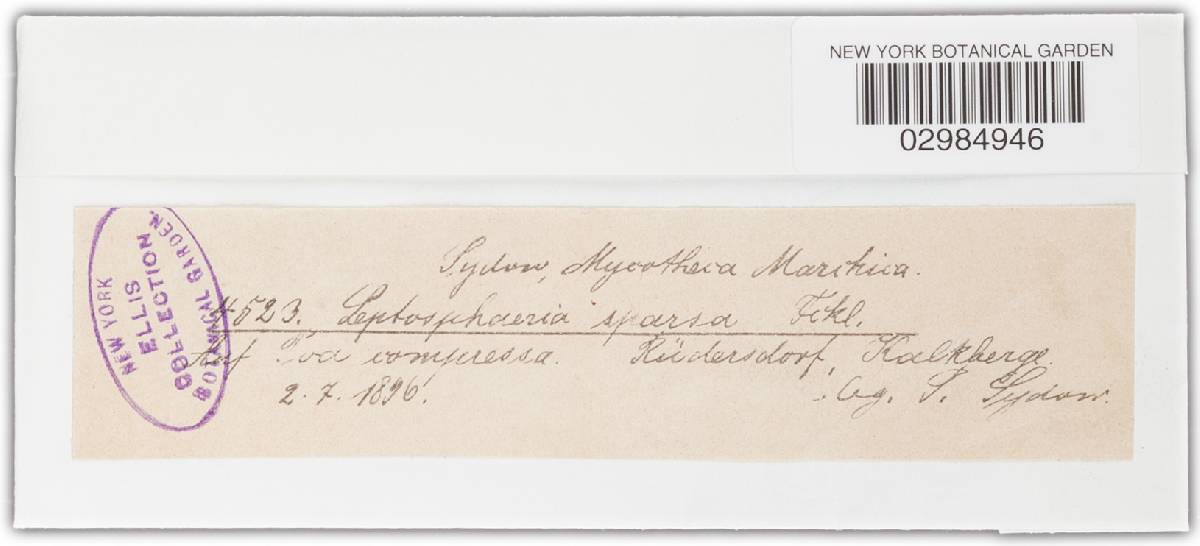 NEW YORK BOTANICAL GARDEN
02984946
NEW YORK
ELLIS
COLLECTION
BOTANICAL GARDEN.
Sydow, Mycotheca Marchica.
4523. Leptosphaeria sparsa Fckl.
Auf Poa compressa. Rüdersdorf, Kalkberge.
2. 7. 1896. leg. P. Sydow.